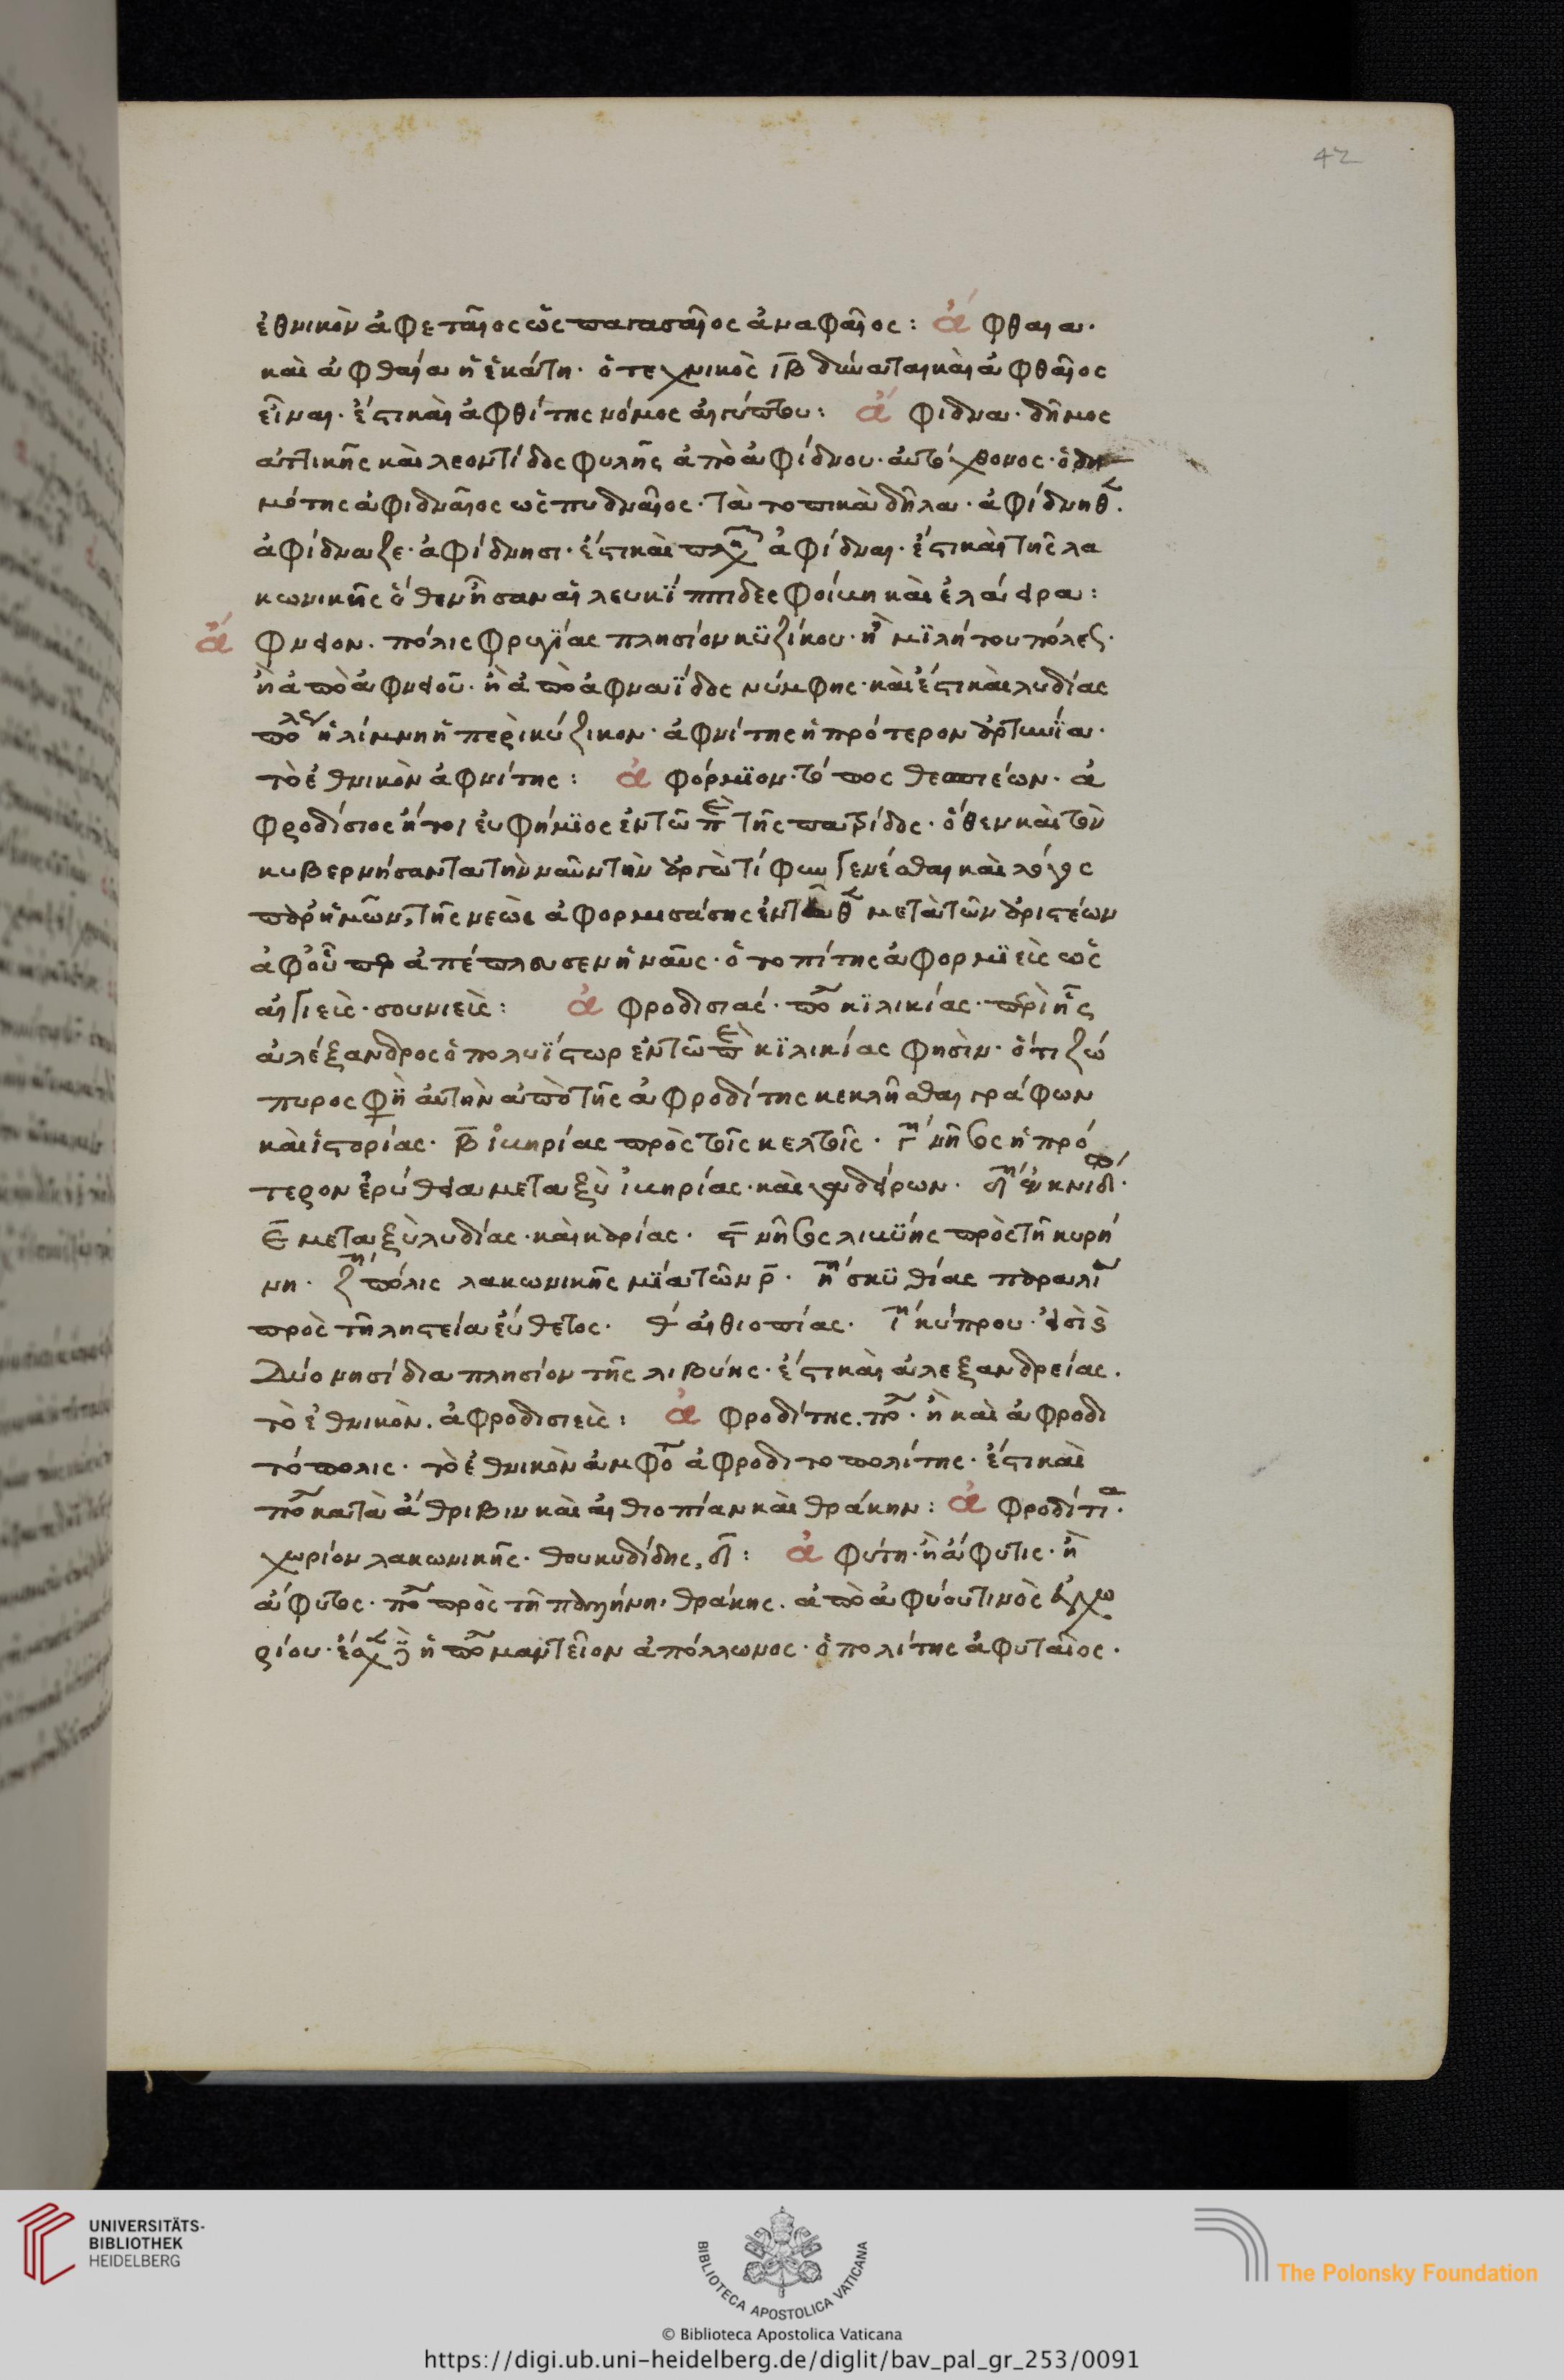 42
ἐθνικὸν ἀφεταῖος ὡς παγασαῖος ἀναφαῖος : ἄφθαια ·
καὶ ἀφθαία ἡ ἑκάτη · ὁ τεχνικὸς ιβ δύναται καὶ ἀφθαῖος
εἶναι · ἔστι καὶ ἀφθίτης νόμος αἰγύπτου : ἄφιδνα · δῆμος
ἀττικῆς καὶ λεοντίδος φυλῆς ἀπὸ ἀφίδνου · αὐτόχθονος · ὁ δη
μότης ἀφιδναῖος ὡς πυδναῖος · τὰ τοπικὰ δῆλα · ἀφίδνηθ ·
ἀφίδναζε · ἀφίδνησι · ἔστι καὶ πλη ἀφίδναι · ἔστι καὶ τῆς λα
κωνικῆς ὅθεν ἦσαν αἱ λευκϊππιδες φοίκη καὶ ἐλάερα :
ἄφνεον · πόλις φρυγΐας πλησίον κϋζίκου · ἢ μϊλήτου πόλες ·
ἢ ἀπὸ ἀφνεοῦ · ἢ ἀπὸ ἀφναΐδος νύμφης · καὶ ἔστι καὶ λυδίας
πολ ἡ λίμνη ἡ περὶ κύζικον · ἀφνίτης ἡ πρότερον ἀρτυνία ·
τὸ ἐθνικὸν ἀφνίτης : ἀφόρμϊον · τόπος θεσπιέων · ἀ
φροδίσιος ἤτοι εὐφήμϊος ἐν τῷ π τῆς πατρίδος · ὅθεν καὶ τὸν
κυβερνήσαντα τὴν ναῦν τὴν ἀργὼ τίφυν γενέσθαι καὶ λόγος
παρ ἡμῶν, τῆς νεὼς ἀφορμισάσης ἐντ θ μετὰ τῶν ἀριστέων
ἀφ οὗ πρ ἀπέπλευσεν ἡ ναῦς · ὁ τοπίτης ἀφορμϊεὶς ὡς
αἰγιεὶς · σουνιεὶς : ἀφροδισιάς · πο κϊλικίας · περὶ ἧς
ἀλέξανδρος ὁ πολυΐστωρ ἐν τῷ π κϊλικίας φησὶν · ὅτι ζώ
πυρος φῂ αὐτὴν ἀπὸ τῆς ἀφροδίτης κεκλῆσθαι γράφων
καὶ ἱστορίας · β ἰκηρίας πρὸς τοῖς κελτοῖς · γ νῆσος ἡ πρό
τερον ἐρύθεα μεταξὺ ἰκηρίας · καὶ γαδείρων · δ ἐν κνιδ ·
ε μεταξὺ λυδίας · καὶ καρίας · ϛ νῆσος λικύης πρὸς τῇ κυρή
νη · ζ πόλις λακωνικῆς μϊα τῶν ρ · η σκϋθίας παραλι
πρὸς τῇ ληστεία εὔθετος · θ αἰθιοπίας · ι κύπρου · εἰσὶ δ
δύο νησίδια πλησίον τῆς λιβύης · ἔστι καὶ ἀλεξανδρείας ·
τὸ ἐθνικὸν · ἀφροδισιεὶς : ἀφροδίτης · πο · ἢ καὶ ἀφροδι
τόπολις · τὸ ἐθνικὸν ἀμφο ἀφροδιτοπολίτης · ἔστι καὶ
πο κατὰ ἄθριβιν καὶ αἰθιοπίαν καὶ θράκην : ἀφροδίτια ·
χωρίον λακωνικῆς · θουκυδίδης, δ : ἀφύτη · ἢ ἄφυτις · ἢ
ἄφυτος · πο πρὸς τῇ παλήνη, θράκης · ἀπὸ ἀφύου τινὸς ἐγχω
ρίου · ἔσχ ἡ πο μαντεῖον ἀπόλλωνος · ὁ πολίτης ἀφυταῖος ·
UNIVERSITÄTS-
BIBLIOTHEK
HEIDELBERG
BIBLIOTECA APOSTOLICA VATICANA
The Polonsky Foundation
© Biblioteca Apostolica Vaticana
https://digi.ub.uni-heidelberg.de/diglit/bav_pal_gr_253/0091